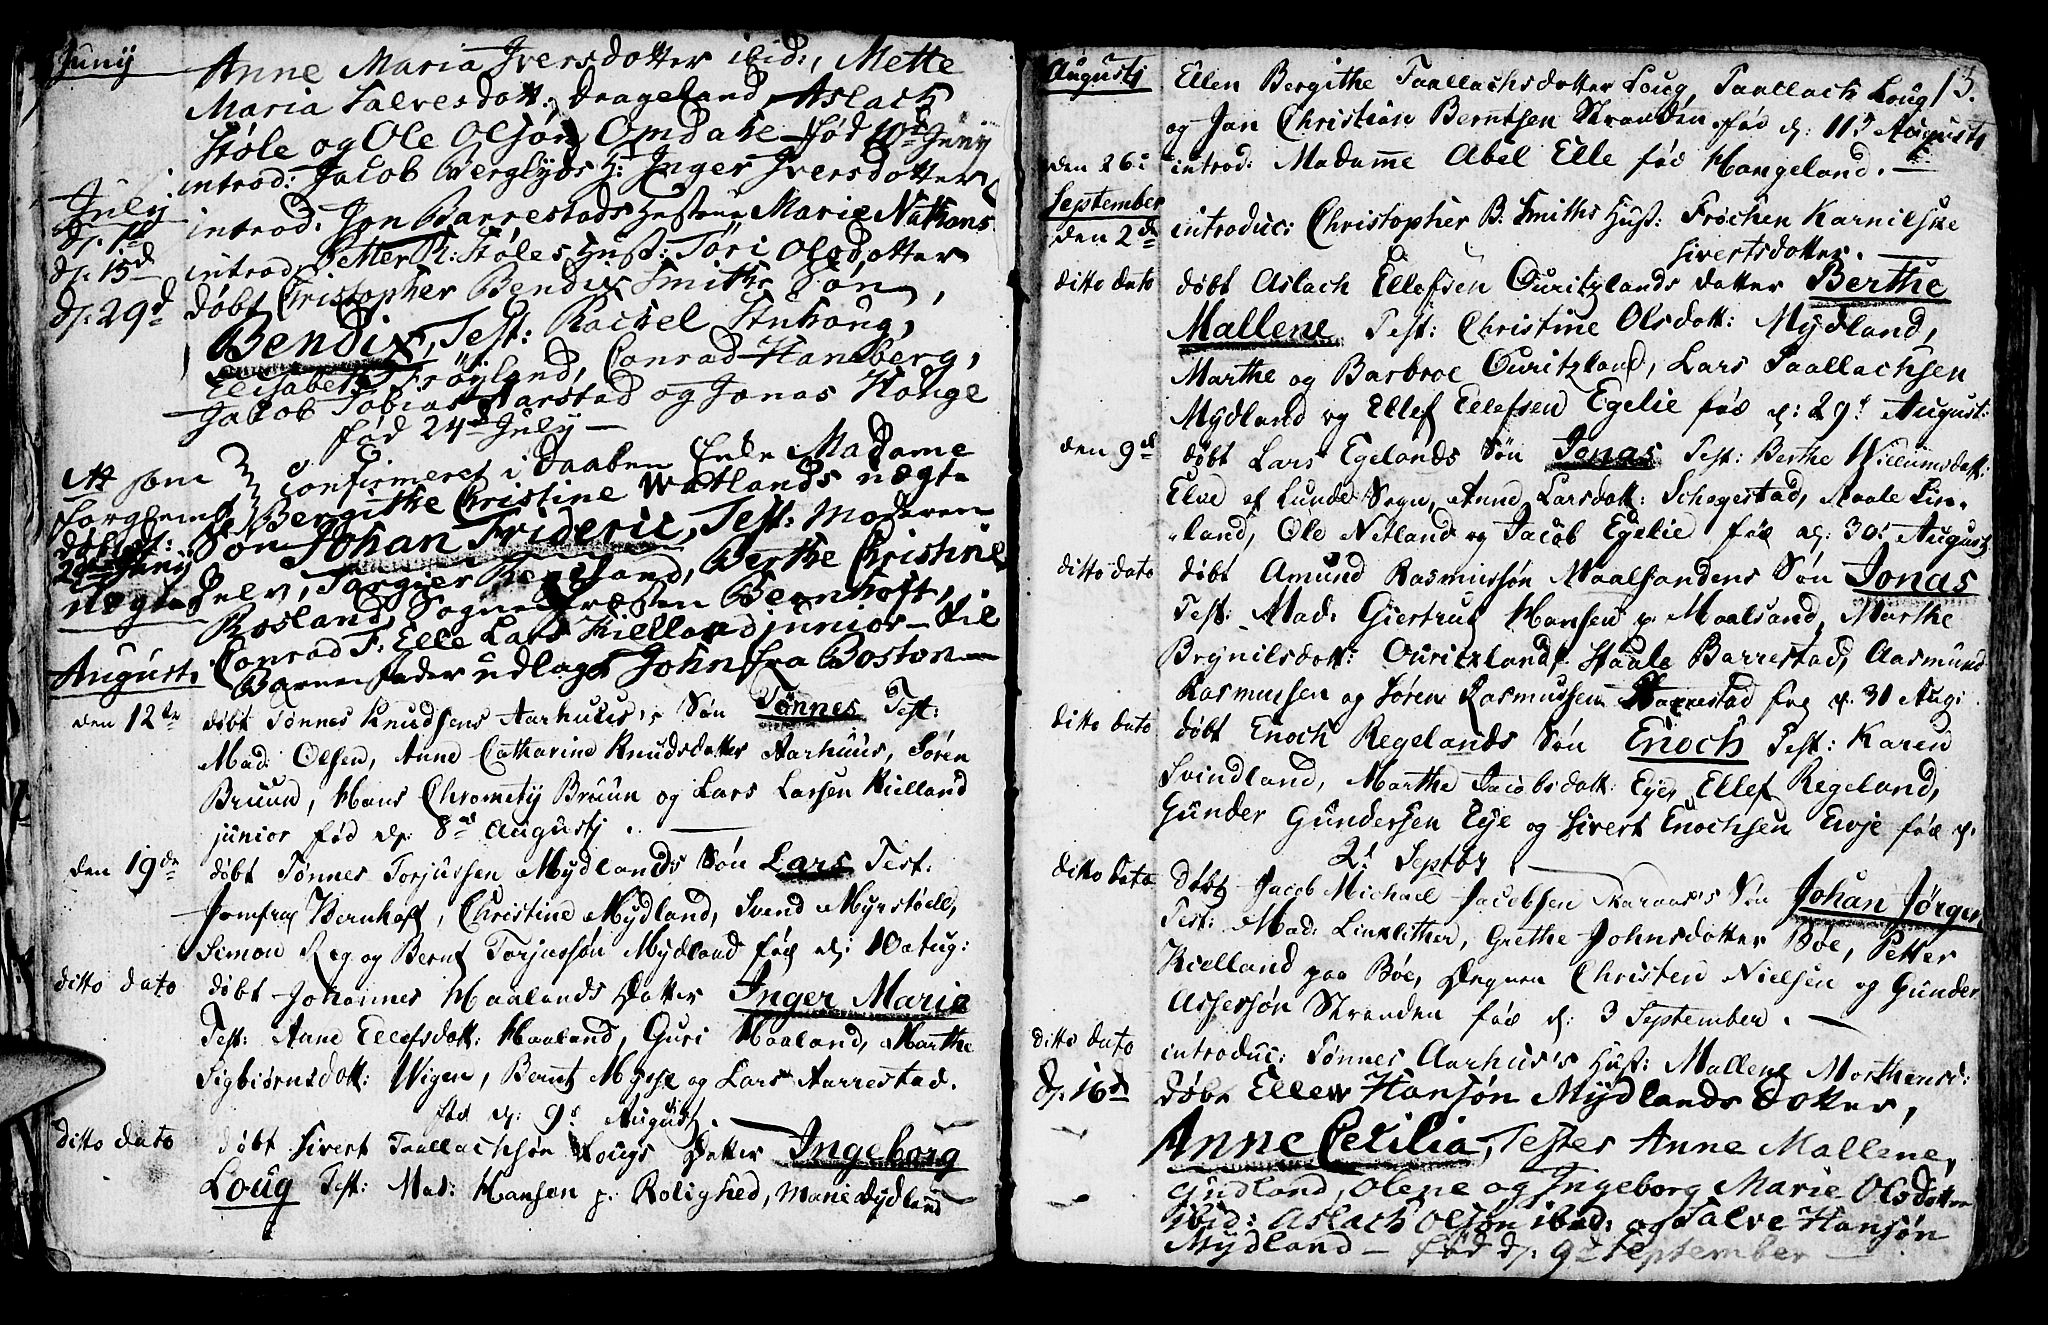 Junij
Anne Maria Iversdotter ibid:, Mette
Maria Salvesdott: Drageland, Aslach
Støle og Ole Olsøn Omdahl fød 10d Junij
introd: Jacob Berglyds H: Inger Iversdotter
July
d. 1ste introd. Jon Barrestads Hustrue Marie Nathans
d. 15d introd. Petter R: Støles Hust: Tøri Olsdotter
d. 29d døbt Christopher Bendix Smiths Søn,
Bendix, Test: Rachel Stuhoug,
Elisabeth Frøyland, Conrad Handberg,
Jacob Tobias Aarstad og Jonas Houge
fød 24d July
At som
confirmeret i Daaben Madame
Bergithe Christine Watlands uægte
døbt:
29de Junij
Søn Johan Frideric, Test: Moderen
uægte
selv, Torgier Regeland, Berthe Christine
Rosland, Sogne Præsten Bernhoft,
Conrad F. Elle Lars Kielland junior - til
Barnefader udlagt John fra Boston
August.
den 12te døbt Tønnes Knudsens Aarhuus's Søn Tønnes Test:
Mad: Olsen, Anne Catharine Knudsdatter Aarhuus, Søren
Bruun, Hans Chrometij Bruun og Lars Larsen Kielland
junior fød d: 8de Augustj.
den 19de døbt Tønnes Torjussen Mydlands Søn Lars Test:
Jomfru Bernhoft, Christine Mydland, Svend Myrstøell,
Simon Reg og Bernt Torjussøn Mydland fød d: 10 Aug:
ditto dato døbt Johannes Haalands Datter Inger Marie
Test: Anne Ellefsdatt: Haaland, Guri Haaland, Marthe
Sigbiørnsdatt: Wigen, Bernt Mysse og Lars Aarrestad.
fød d: 9de Augustj.
ditto dato døbt Sivert Taallachsøn Lougs Datter Ingeborg
Loug Test: Mad: Hansen p: Rolighed, Marie Dydland
Augustj
13.
Ellen Bergithe Taallachsdatter Loug, Taallach Loug
og Jan Christian Berntsen Stranden fød d: 11te Augustj
den 26: introd: Madame Abel Elle fød Hangeland.
September
den 2de introduc: Christopher B. Smiths Hust: Frøchen Karnilske
Sivertsdotter.
ditto dato døbt Aslach Ellefsen Ouritzlands Datter Berthe
Mallene Test: Christine Olsdatt: Mydland,
Marthe og Barbroe Ouritzland, Lars Taallachsen
Mydland og Ellef Ellefsen Egelie fød d: 29de August:
den 9de døbt Lars Egelands Søn Jonas Test: Berthe Willumsdatt:
Elve af Lunde Sogn, Anne Larsdatt: Schogestad, Staale Lin-
land, Ole Netland og Jacob Egelie fød d: 30: August
ditto dato døbt Amund Rasmussøn Maalsandens Søn Jonas
Test: Mad: Giertrud Hansen p: Maalsand, Marthe
Brynilsdatt: Ouritzland, Staale Barrestad, Aasmund
Rasmussen og Søren Rasmussen Aarrestad fød d. 31 Aug:
ditto dato døbt Enoch Regelands Søn Enoch Test: Karen
Svindland, Marthe Jacobsdatt: Eye, Ellef Regeland,
Gunder Gundersen Eye og Sivert Enochsen Evje fød d.
2: Septbr.
ditto dato døbt Jacob Michael Jacobsen Søn Johan Jørgen,
Test: Mad: Linklither, Grethe Johnsdatter Bøe, Petter
Kielland paa Bøe, Degnen Christen Nielsen og Gunder
Assersøn Stranden fød d: 3 September.
ditto dato introduc: Tønnes Aarhus's Hust: Mallene Morthensd:
d. 16d døbt Ellev Hansøn Mydlands Dotter,
Anne Cecilia, Tester Anne Mallene
Gudland, Olene og Ingeborg Marie Olsdotter
ibid: Aslach Olsøn ibid: og Salve Hansøn
Mydland - fød d. 9d September